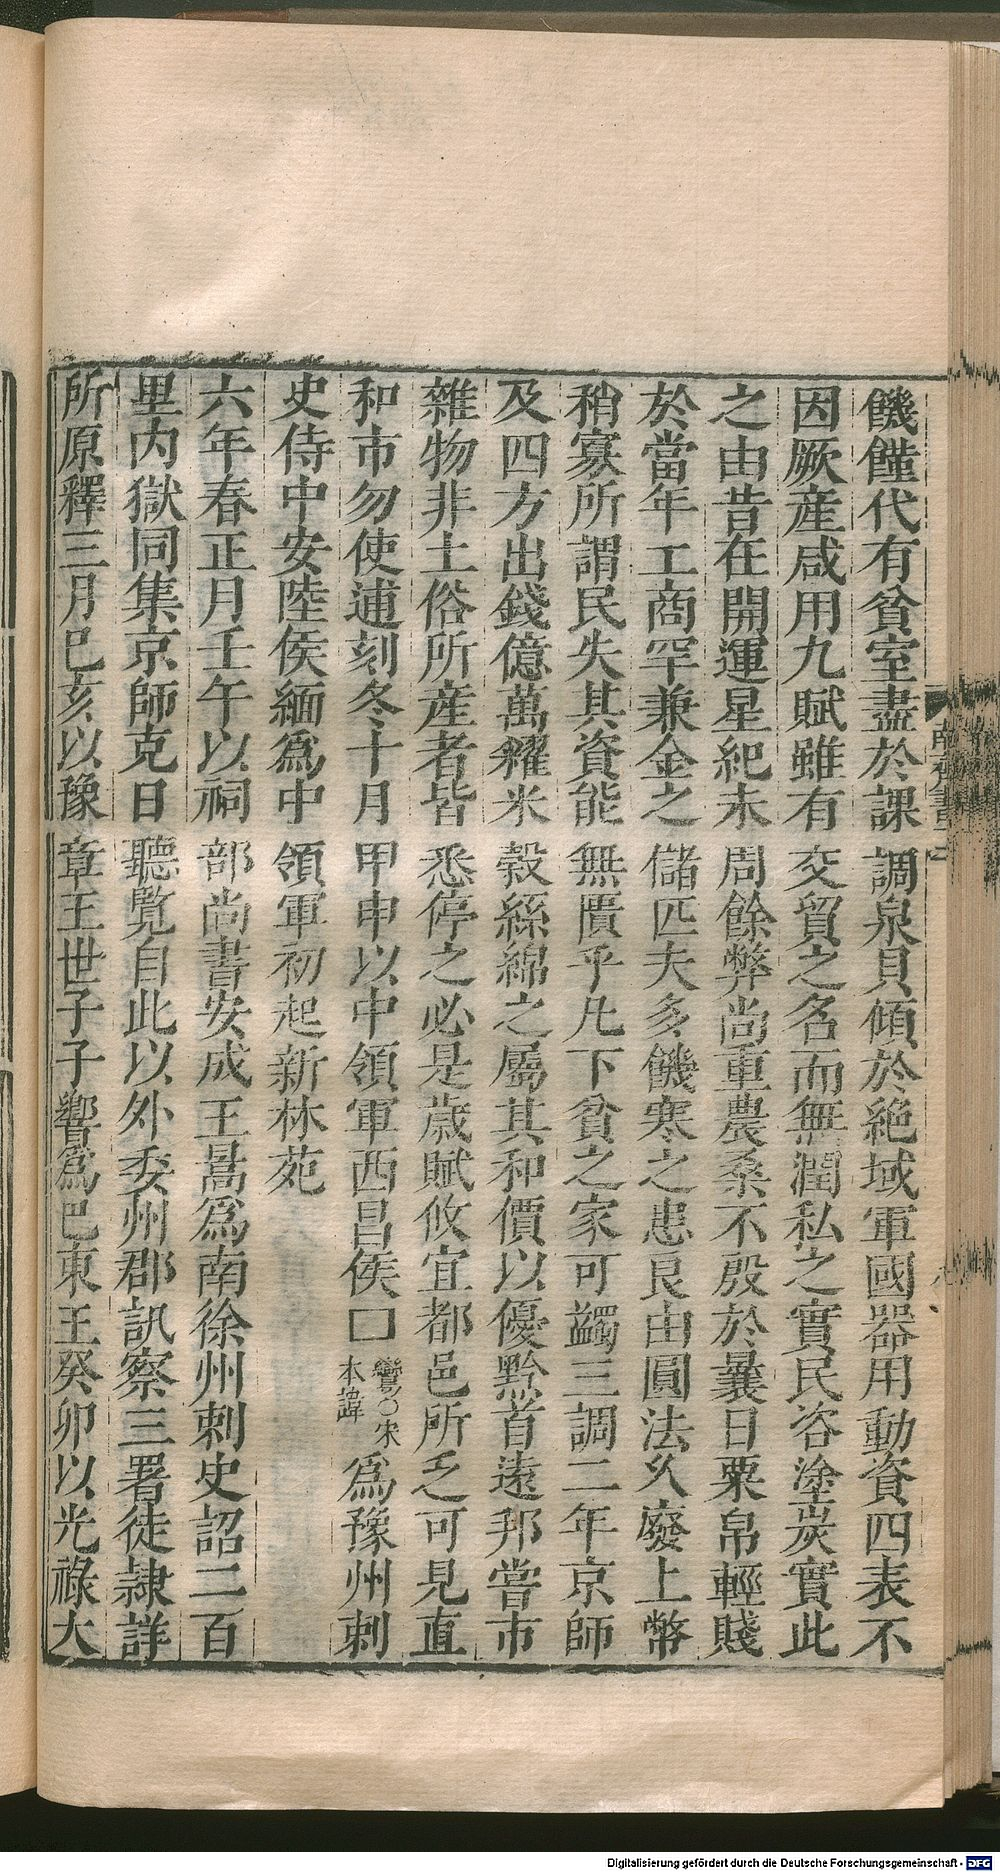 饑饉代有貧室盡於課調泉貝傾於絕域軍國器用動資四表不
因厥産咸用九賦雖有交貿之名而無潤私之實民咨塗炭實此
之由昔在開運星紀未周餘弊尚重農桑不殷於曩日粟帛輕賤
於當年工商罕兼金之儲匹夫多饑寒之患良由圓法久廢上幣
稍寡所謂民失其資能無匱乎凡下貧之家可蠲三調二年京師
及四方出錢億萬糴米穀絲綿之屬其和價以優黔首遠邦嘗市
雜物非土俗所産者皆悉停之必是歲賦攸宜都邑所乏可見直
和市勿使逋刻冬十月甲申以中領軍西昌侯□鸞○宋本諱爲豫州刺
史侍中安陸侯緬爲中領軍初起新林苑
六年春正月壬午以祠部尚書安成王暠爲南徐州刺史詔二百
里內獄同集京師克日聽覽自此以外委州郡訊察三署徒隷詳
所原釋三月己亥以豫章王世子子響爲巴東王癸卯以光祿大
Digitalisierung gefördert durch die Deutsche Forschungsgemeinschaft - DFG